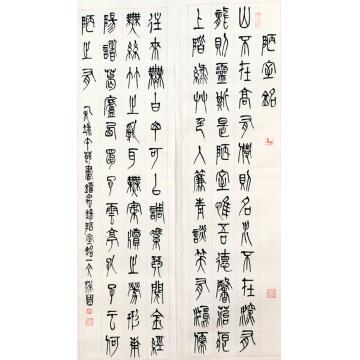 陋室銘
山不在高有僊則名水不在深有
龍則靈斯是陋室唯吾德馨苔痕
上階綠艸色入簾青談笑有鴻儒
往來無白丁可以調素琴閱金經
無絲竹之亂耳無案牘之勞形南
陽諸葛廬西蜀子雲亭孔子云何
陋之有